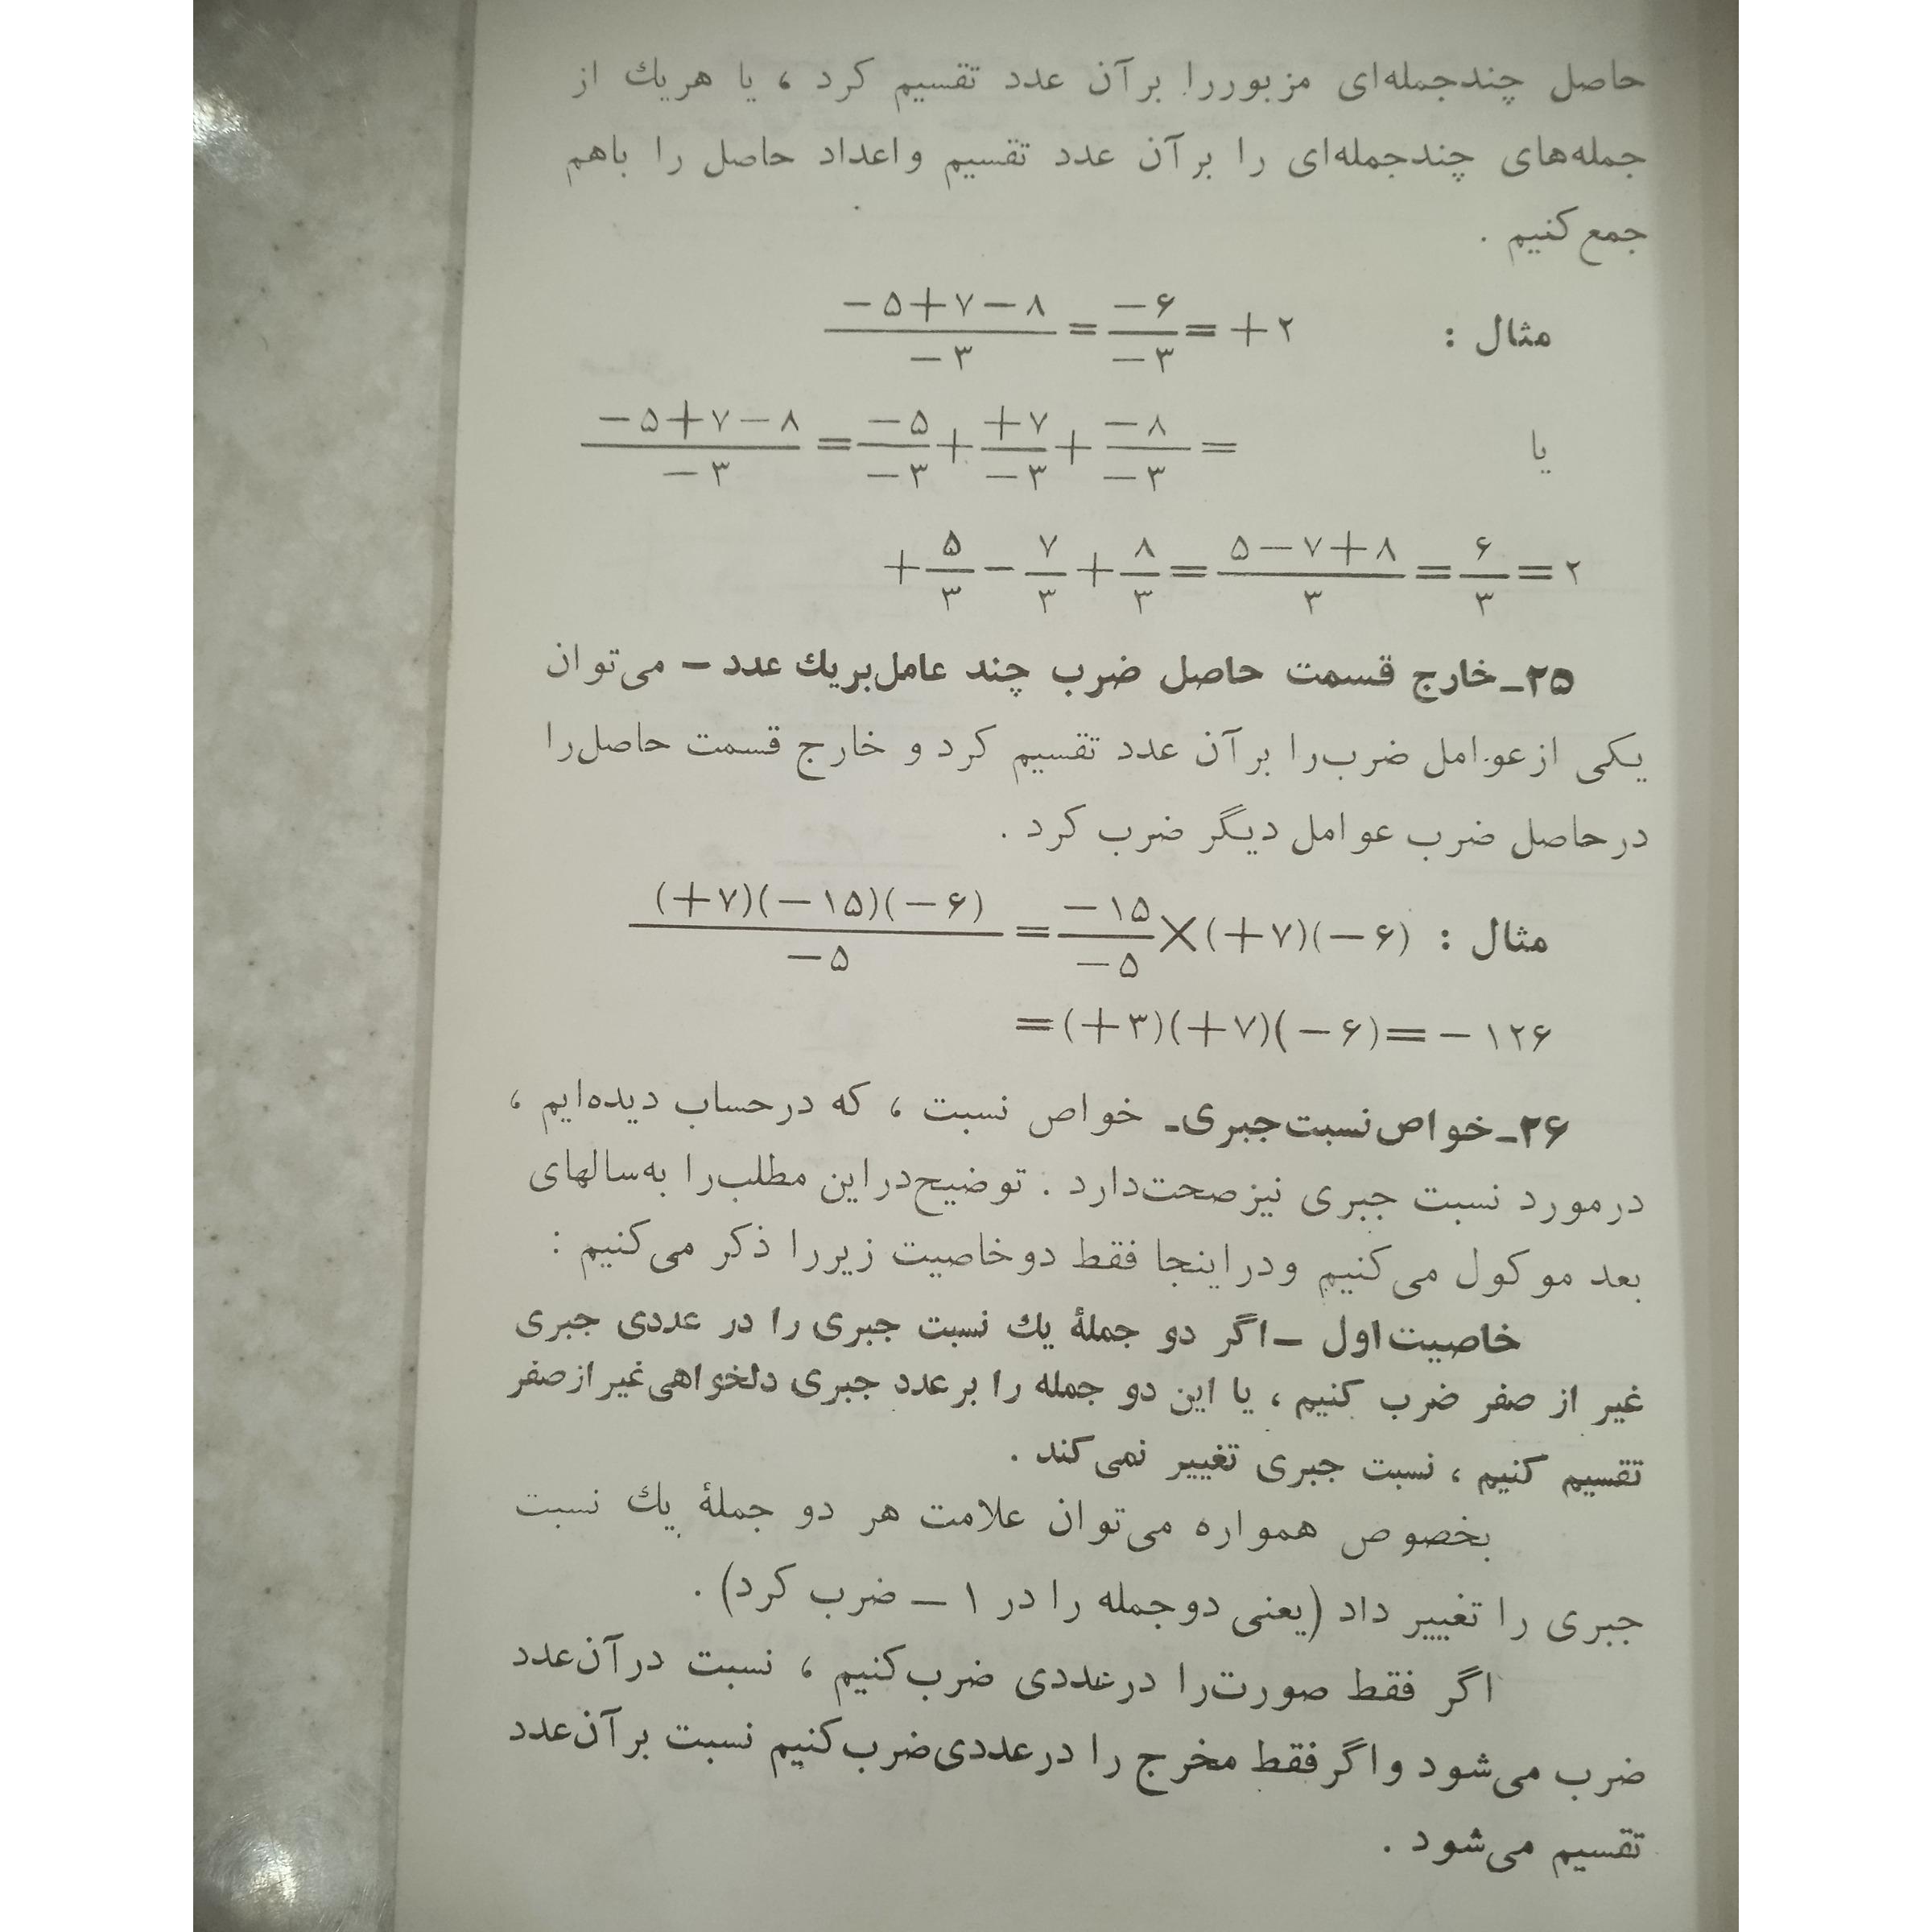 حاصل چندجمله‌ای مزبوررا برآن عدد تقسیم کرد ، یا هریك از
جمله‌های چندجمله‌ای را برآن عدد تقسیم واعداد حاصل را باهم
جمع کنیم .
مثال : (−۵+۷−۸)/(−۳) = (−۶)/(−۳) = +۲
یا (−۵+۷−۸)/(−۳) = (−۵)/(−۳) + (+۷)/(−۳) + (−۸)/(−۳) =
+ ۵/۳ − ۷/۳ + ۸/۳ = (۵−۷+۸)/۳ = ۶/۳ = ۲
۲۵ـ خارج قسمت حاصل ضرب چند عامل‌بریك عدد – می‌توان
یکی ازعوامل ضرب‌را برآن عدد تقسیم کرد و خارج قسمت حاصل‌را
درحاصل ضرب عوامل دیگر ضرب کرد .
مثال : (+۷)(−۱۵)(−۶)/(−۵) = (−۱۵)/(−۵) × (+۷)(−۶)
=(+۳)(+۷)(−۶)=−۱۲۶
۲۶ـ خواص نسبت جبری‌ـ خواص نسبت ، که درحساب دیده‌ایم ،
درمورد نسبت جبری نیزصحت‌دارد . توضیح‌دراین مطلب‌را به‌سالهای
بعد موکول می‌کنیم ودراینجا فقط دوخاصیت زیررا ذکر می‌کنیم :
خاصیت‌اول –اگر دو جملهٔ یك نسبت جبری را در عددی جبری
غیر از صفر ضرب کنیم ، یا این دو جمله را برعدد جبری دلخواهی غیرازصفر
تقسیم کنیم ، نسبت جبری تغییر نمی‌کند .
بخصوص همواره می‌توان علامت هر دو جملهٔ یك نسبت
جبری را تغییر داد (یعنی دوجمله را در ۱ – ضرب کرد) .
اگر فقط صورت‌را درعددی ضرب‌کنیم ، نسبت درآن‌عدد
ضرب می‌شود واگرفقط مخرج را درعددی‌ضرب‌کنیم نسبت برآن‌عدد
تقسیم می‌شود .